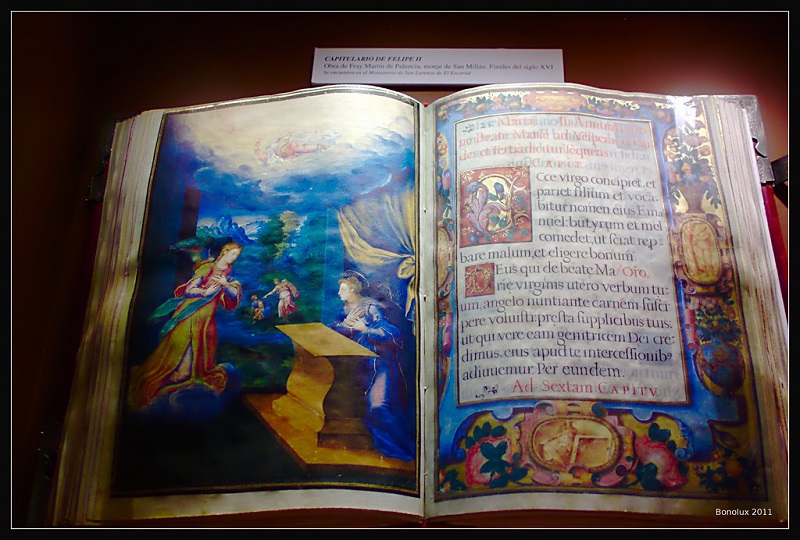 CAPITULARIO DE FELIPE II
Obra de Fray Martín de Palencia, monje de San Millán. Finales del siglo XVI
Se encuentra en el Monasterio de San Lorenzo de El Escorial
CAPIT.
Cce virgo concipiet, et
pariet filium et voca-
bitur nomen eius Ema
nuel: butyrum et mel
comedet, ut sciat rep-
bare malum, et eligere bonum.
Eus qui de beate Ma Oro.
rie virginis utero verbum tu-
um, angelo nuntiante carnem susci
pere voluisti: presta supplicibus tuis:
ut qui vere eam genitricem Dei cre-
dimus, eius apud te intercessionib9
adiuuemur. Per eundem.
Ad Sextam CAPITV.
Bonolux 2011